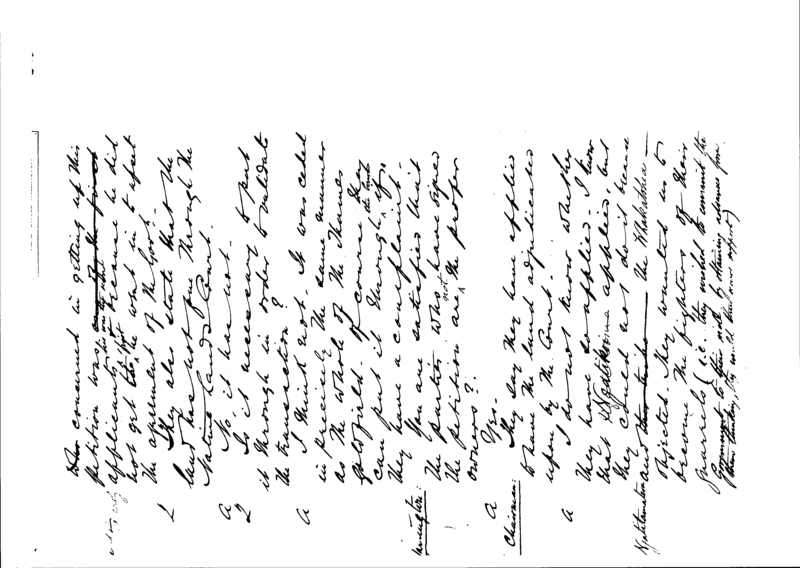 concerned in getting up this
petition was
applicants because he did
not get he went in to upset
the agreement of the Court.
Q They also state that the
land has not gone through the
Native Lands Court.
A No it has not.
Q Is it necessary to put
it through in order to validate
the transaction?
A I think not. It was ceded
in precisely the same manner
as the whole of the Thames
goldfield. Of course they
can put it through the Court if
they have a complaint.
You are satisfied that
the parties who have signed
the petition are not the proper
owners?
A Yes.
Chairman: They say they have applied
to have the land adjudicated
upon by the Court.
A I do not know whether
they have so applied. I know
that applied, but
they could not do it because
Ngatitamatera and the Whakatohea
objected. They wanted us to
become the fighters of their
quarrels (i.e. they wished to commit the
Government to their side by obtaining advances from